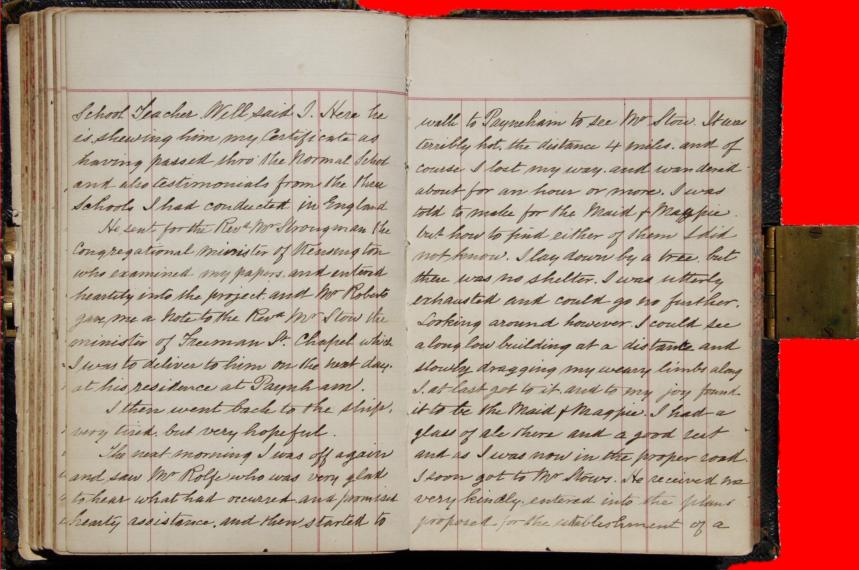 School Teacher Well, said I. Here he
is, shewing him my Certificate as
having passed thro' the Normal School
and also testimonials from the three
Schools I had conducted in England
He sent for the Revd. Mr Strongman the
Congregational minister of Kensington
who examined my papers. and entered
heartily into the project. and Mr Roberts
gave me a Note to the Revd Mr Stow the
minister of Freeman St. Chapel which
I was to deliver to him on the next day.
at his residence at Paynham.
I then went back to the ship.
very tired, but very hopeful.
The next morning I was off again
and saw Mr Rolfe who was very glad
to hear what had occurred and promised
hearty assistance, and then started to
walk to Payneham to see Mr Stow. It was
terribly hot, the distance 4 miles. and of
course I lost my way. and wandered
about for an hour or more. I was
told to make for the Maid & Magpie.
but how to find either of them I did
not know. I lay down by a tree, but
there was no shelter. I was utterly
exhausted and could go no further.
Looking around however I could see
a long low building at a distance and
slowly dragging my weary limbs along
I at last got to it. and to my joy found
it to be the Maid & Magpie. I had a
glass of ale there and a good rest
and as I was now in the proper road
I soon got to Mr Stows. He received me
very kindly. entered into the plans
proposed for the establishment of a